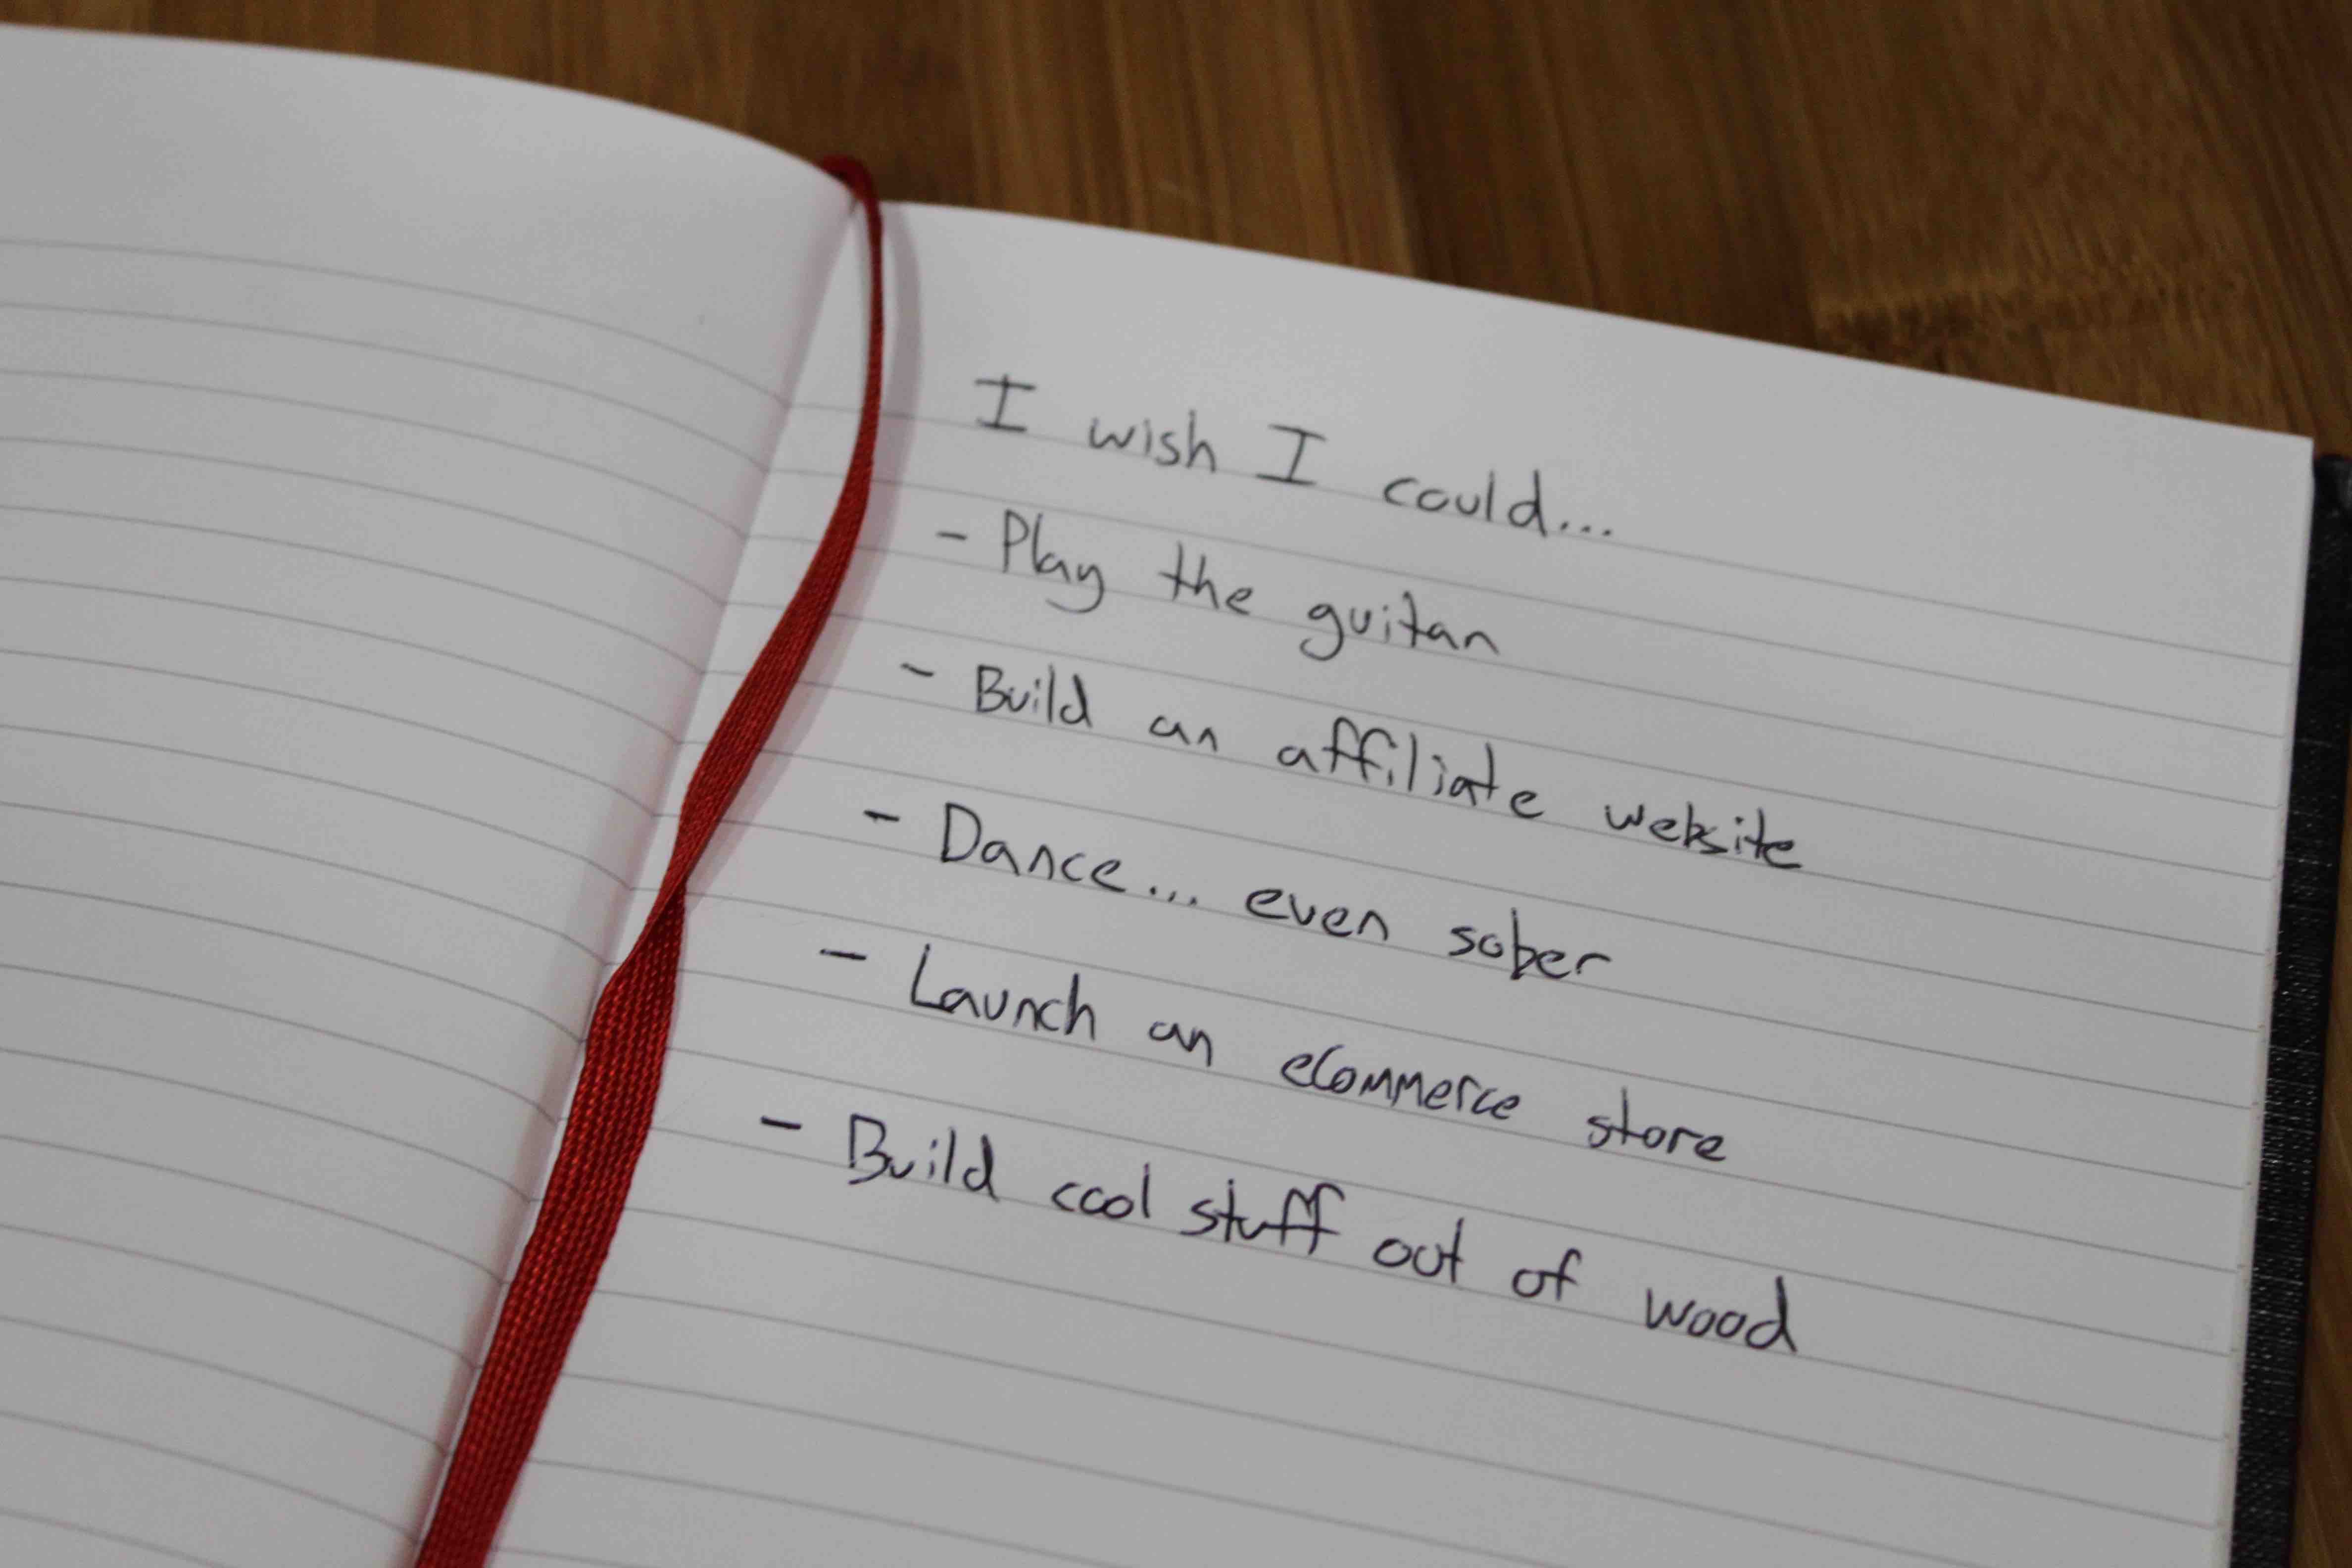 I wish I could...
- Play the guitar
- Build an affiliate website
- Dance... even sober
- Launch an eCommerce store
- Build cool stuff out of wood